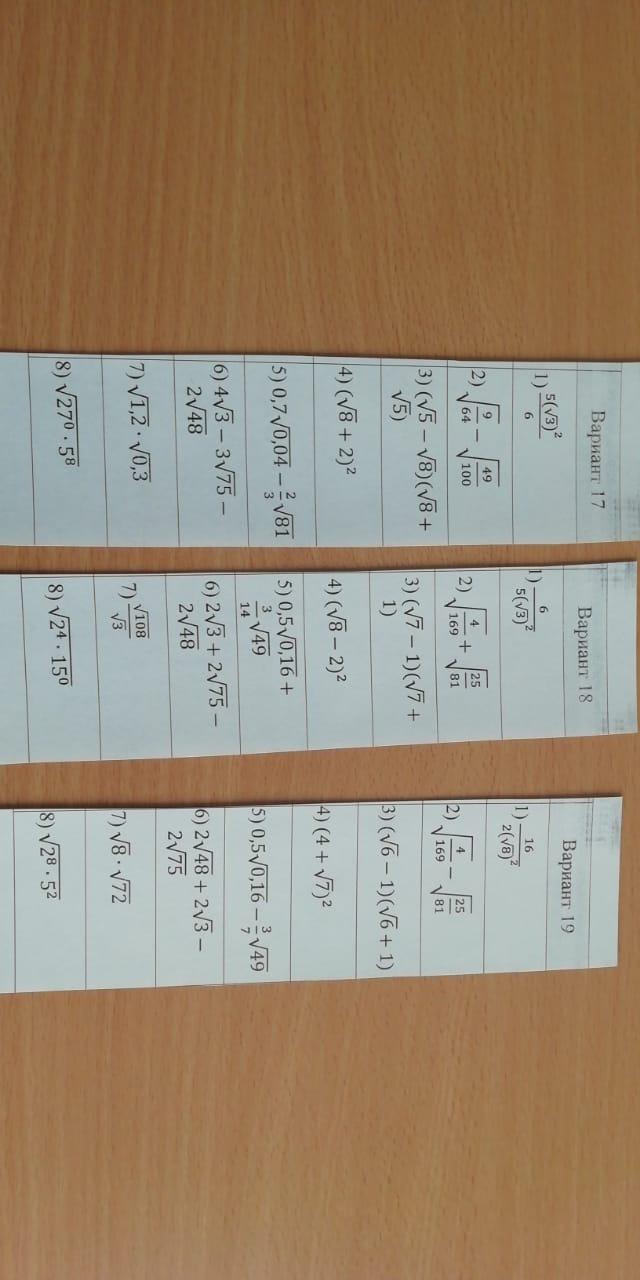 Вариант 17
1) 5(√3)²/6
2) √(9/64) − √(49/100)
3) (√5 − √8)(√8 +
√5)
4) (√8 + 2)²
5) 0,7√0,04 − 2/3 √81
6) 4√3 − 3√75 −
2√48
7) √1,2 · √0,3
8) √(27⁰ · 5⁸)
Вариант 18
1) 6/5(√3)²
2) √(4/169) + √(25/81)
3) (√7 − 1)(√7 +
1)
4) (√8 − 2)²
5) 0,5√0,16 +
3/14 √49
6) 2√3 + 2√75 −
2√48
7) √108/√3
8) √(2⁴ · 15⁰)
Вариант 19
1) 16/2(√8)²
2) √(4/169) − √(25/81)
3) (√6 − 1)(√6 + 1)
4) (4 + √7)²
5) 0,5√0,16 − 3/7 √49
6) 2√48 + 2√3 −
2√75
7) √8 · √72
8) √(2⁸ · 5²)